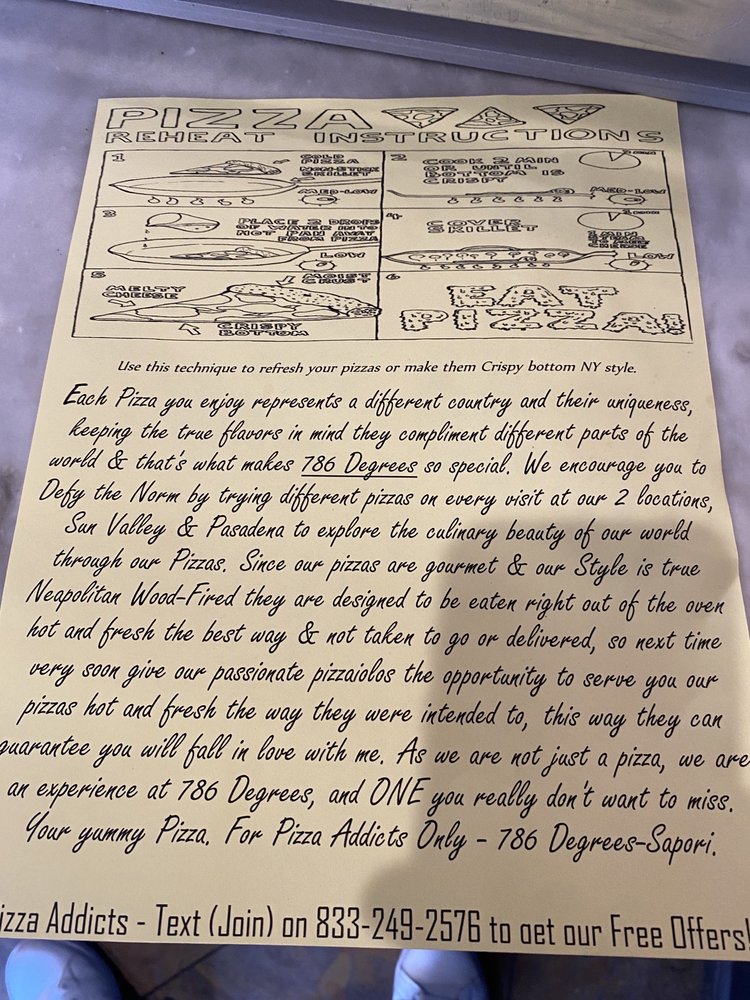 PIZZA
REHEAT INSTRUCTIONS
1
COLD
PIZZA
NON-STICK
SKILLET
MED-LOW
2
COOK 2 MIN
OR UNTIL
BOTTOM IS
CRISPY
2 MIN
MED-LOW
3
PLACE 2 DROPS
OF WATER INTO
HOT PAN AWAY
FROM PIZZA
LOW
4
COVER
SKILLET
1 MIN
STEAM
TO MELT
CHEESE
LOW
5
MELTY
CHEESE
MOIST
CRUST
CRISPY
BOTTOM
6
EAT
PIZZA!
Use this technique to refresh your pizzas or make them Crispy bottom NY style.
Each Pizza you enjoy represents a different country and their uniqueness,
keeping the true flavors in mind they compliment different parts of the
world & that's what makes 786 Degrees so special. We encourage you to
Defy the Norm by trying different pizzas on every visit at our 2 locations,
Sun Valley & Pasadena to explore the culinary beauty of our world
through our Pizzas. Since our pizzas are gourmet & our Style is true
Neapolitan Wood-Fired they are designed to be eaten right out of the oven
hot and fresh the best way & not taken to go or delivered, so next time
very soon give our passionate pizzaiolos the opportunity to serve you our
pizzas hot and fresh the way they were intended to, this way they can
guarantee you will fall in love with me. As we are not just a pizza, we are
an experience at 786 Degrees, and ONE you really don't want to miss.
Your yummy Pizza. For Pizza Addicts Only - 786 Degrees-Sapori.
izza Addicts - Text (Join) on 833-249-2576 to get our Free Offers!